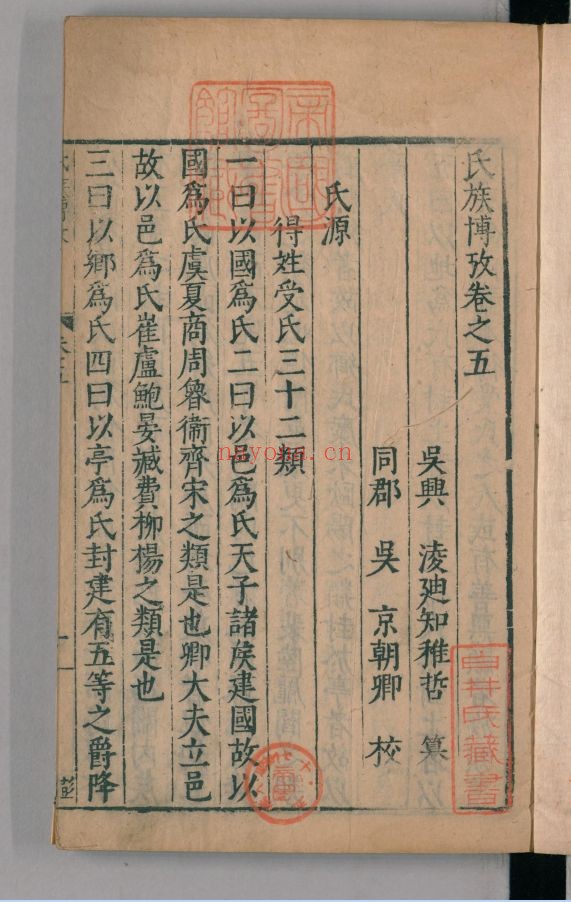 氏族博攷卷之五
吳興 淩迪知稚哲 纂
同郡 吳 京朝卿 校
氏源
得姓受氏三十二類
一曰以國爲氏二曰以邑爲氏天子諸侯建國故以
國爲氏虞夏商周魯衞齊宋之類是也卿大夫立邑
故以邑爲氏崔盧鮑晏臧費柳楊之類是也
三曰以鄉爲氏四曰以亭爲氏封建有五等之爵降
彭
帝國圖書館藏
白井氏藏書
nayona.cn